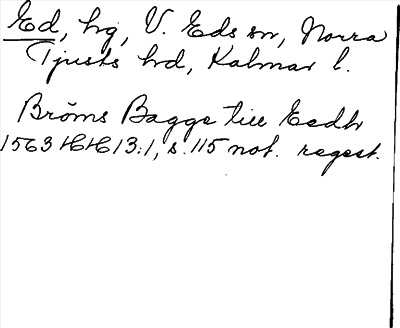 Ed, hg, V. Eds sn, Norra
Tjusts hd, Kalmar l.
Bröms Bagge till Eedh
1563 HH 13:1, s. 115 not. regest.